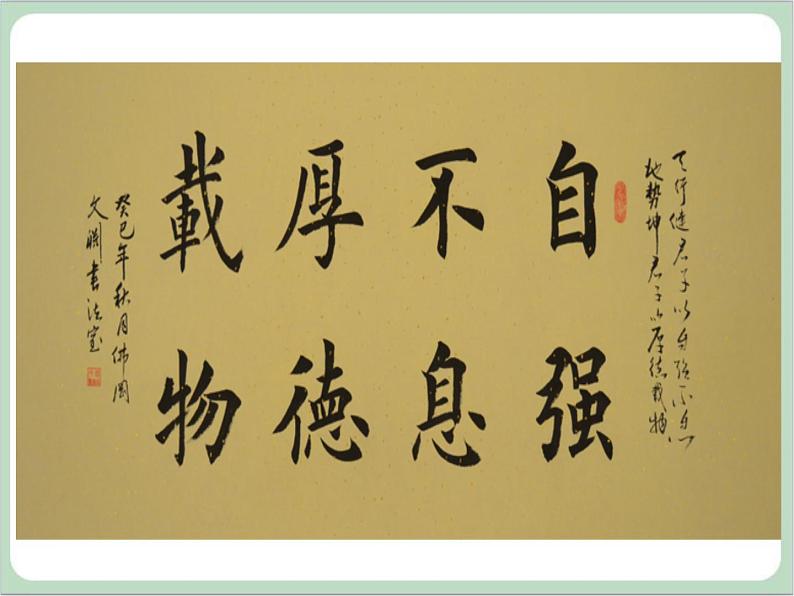 天行健君子以自强不息
地勢坤君子以厚德載物
自强
不息
厚德
載物
癸巳年秋月
書法室